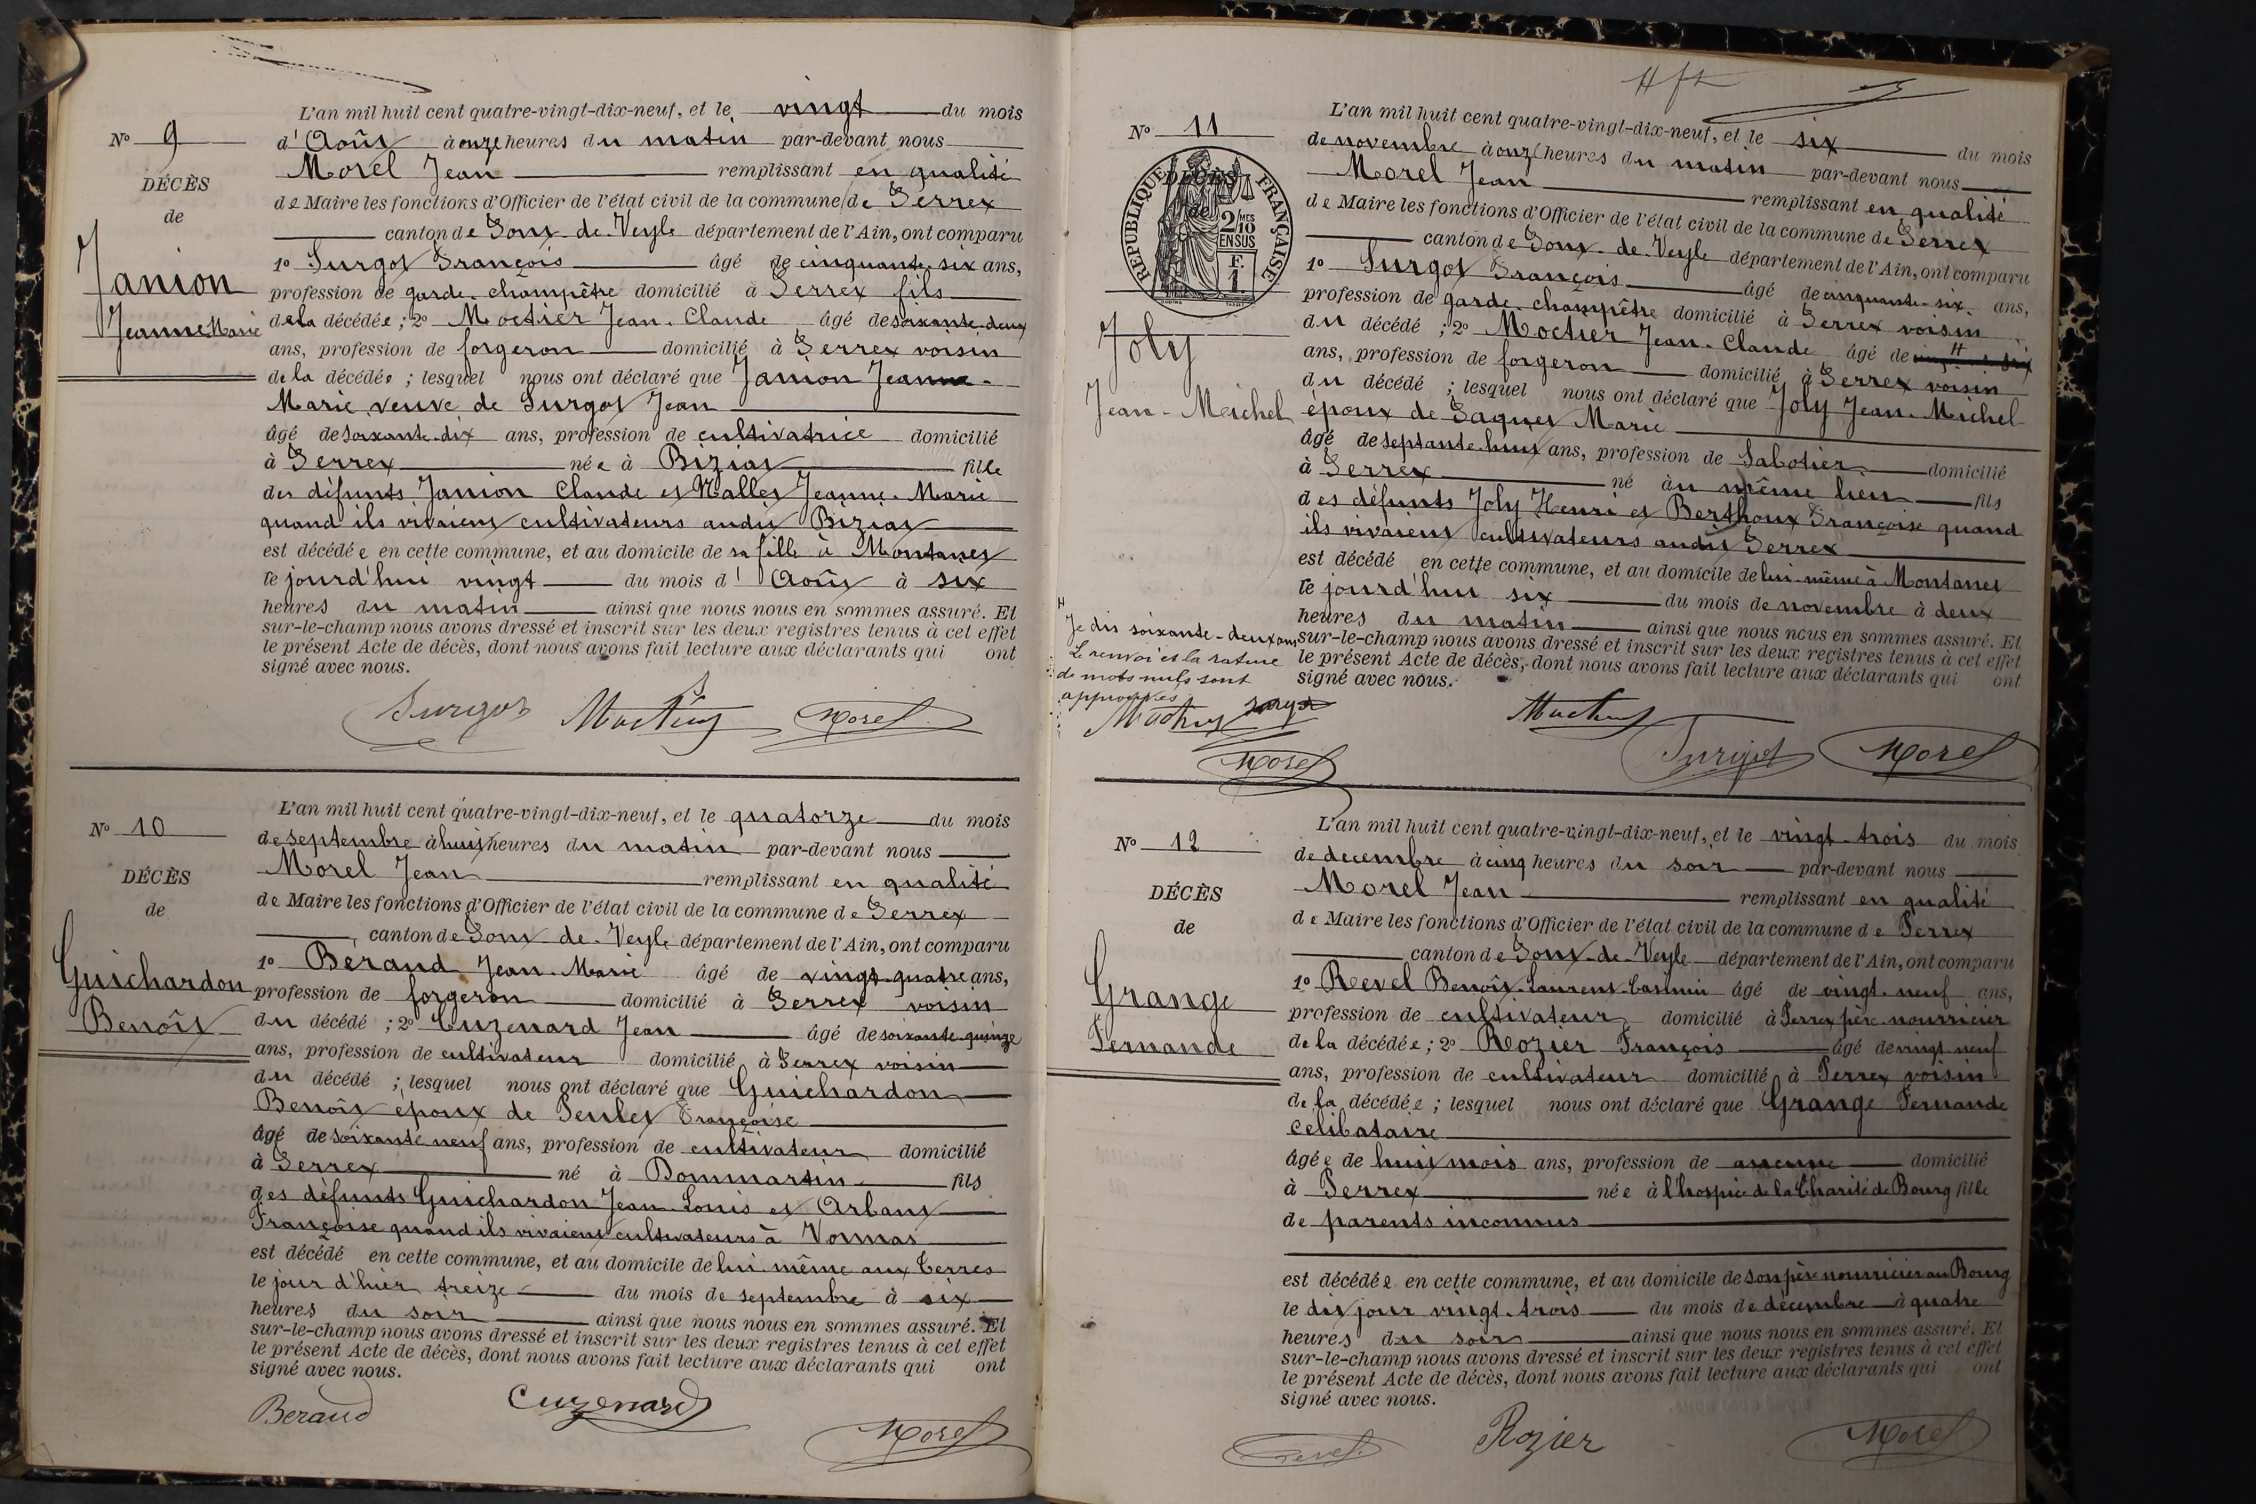 L'an mil huit cent quatre-vingt-dix-neuf, et le vingt du mois
No 9
d'Août à onze heures du matin par-devant nous
Morel Jean remplissant en qualité
DÉCÈS
de Maire les fonctions d'Officier de l'état civil de la commune de Perrex
de
canton de Pont-de-Veyle département de l'Ain, ont comparu
1o Surgot François âgé de cinquante-six ans,
Janion
profession de garde-champêtre domicilié à Perrex fils
Jeanne Marie
de la décédée; 2o Moctier Jean-Claude âgé de soixante-deux
ans, profession de forgeron domicilié à Perrex voisin
de la décédée; lesquel nous ont déclaré que Janion Jeanne-
Marie veuve de Surgot Jean
âgé de soixante-dix ans, profession de cultivatrice domicilié
à Perrex née à Biziat fille
des défunts Janion Claude et Jeanne-Marie
quand ils vivaient cultivateurs audit Biziat
est décédée en cette commune, et au domicile de sa fille à Montanet
le jourd'hui vingt du mois d'Août à six
heures du matin ainsi que nous nous en sommes assuré. Et
sur-le-champ nous avons dressé et inscrit sur les deux registres tenus à cet effet
le présent Acte de décès, dont nous avons fait lecture aux déclarants qui ont
signé avec nous.
Surgot Moctier Morel
L'an mil huit cent quatre-vingt-dix-neuf, et le quatorze du mois
No 10
de septembre à huit heures du matin par-devant nous
Morel Jean remplissant en qualité
DÉCÈS
de Maire les fonctions d'Officier de l'état civil de la commune de Perrex
de
canton de Pont-de-Veyle département de l'Ain, ont comparu
1o Beraud Jean-Marie âgé de vingt-quatre ans,
Guichardon
profession de forgeron domicilié à Perrex voisin
Benoît
du décédé; 2o Cuzenard Jean âgé de soixante-quinze
ans, profession de cultivateur domicilié à Perrex voisin
du décédé; lesquel nous ont déclaré que Guichardon
Benoît époux de Françoise
âgé de soixante neuf ans, profession de cultivateur domicilié
à Perrex né à Dommartin fils
des défunts Guichardon Jean-Louis et Arbant
Françoise quand ils vivaient cultivateurs à Vonnas
est décédé en cette commune, et au domicile de lui-même aux Terres
le jour d'hier treize du mois de septembre à six
heures du soir ainsi que nous nous en sommes assuré. Et
sur-le-champ nous avons dressé et inscrit sur les deux registres tenus à cet effet
le présent Acte de décès, dont nous avons fait lecture aux déclarants qui ont
signé avec nous.
Beraud Cuzenard Morel
L'an mil huit cent quatre-vingt-dix-neuf, et le six du mois
No 11
de novembre à onze heures du matin par-devant nous
Morel Jean remplissant en qualité
DÉCÈS
de
RÉPUBLIQUE FRANÇAISE
2/10 MES
EN SUS
F.
1.
de Maire les fonctions d'Officier de l'état civil de la commune de Perrex
canton de Pont-de-Veyle département de l'Ain, ont comparu
1o Surgot François âgé de cinquante-six ans,
profession de garde-champêtre domicilié à Perrex voisin
Joly
du décédé; 2o Moctier Jean-Claude âgé de
ans, profession de forgeron domicilié à Perrex voisin
du décédé; lesquel nous ont déclaré que Joly Jean-Michel
Jean-Michel
époux de Marie
âgé de septante-huit ans, profession de Sabotier domicilié
à Perrex né au même lieu fils
des défunts Joly Henri et Berthoux Françoise quand
ils vivaient cultivateurs audit Perrex
est décédé en cette commune, et au domicile de lui-même à Montanet
le jourd'hui six du mois de novembre à deux
heures du matin ainsi que nous nous en sommes assuré. Et
sur-le-champ nous avons dressé et inscrit sur les deux registres tenus à cet effet
le présent Acte de décès, dont nous avons fait lecture aux déclarants qui ont
signé avec nous.
Je dis soixante-deux ans
Le renvoi et la rature
de mots nuls sont
approuvés
Moctier Surgot
Morel
Moctier
Surgot Morel
L'an mil huit cent quatre-vingt-dix-neuf, et le vingt-trois du mois
No 12
de decembre à cinq heures du soir par-devant nous
Morel Jean remplissant en qualité
DÉCÈS
de Maire les fonctions d'Officier de l'état civil de la commune de Perrex
de
canton de Pont-de-Veyle département de l'Ain, ont comparu
1o Revel Benoît-Laurent-Casimir âgé de vingt-neuf ans,
Grange
profession de cultivateur domicilié à Perrex père nourricier
Fernande
de la décédée; 2o Rozier François âgé de vingt-neuf
ans, profession de cultivateur domicilié à Perrex voisin
de la décédée; lesquel nous ont déclaré que Grange Fernande
celibataire
âgée de huit mois ans, profession de aucune domicilié
à Perrex née à l'hospice de la Charité de Bourg fille
de parents inconnus
est décédée en cette commune, et au domicile de son père nourricier au Bourg
le dit jour vingt-trois du mois de décembre à quatre
heures du soir ainsi que nous nous en sommes assuré. Et
sur-le-champ nous avons dressé et inscrit sur les deux registres tenus à cet effet
le présent Acte de décès, dont nous avons fait lecture aux déclarants qui ont
signé avec nous.
Revel Rozier Morel